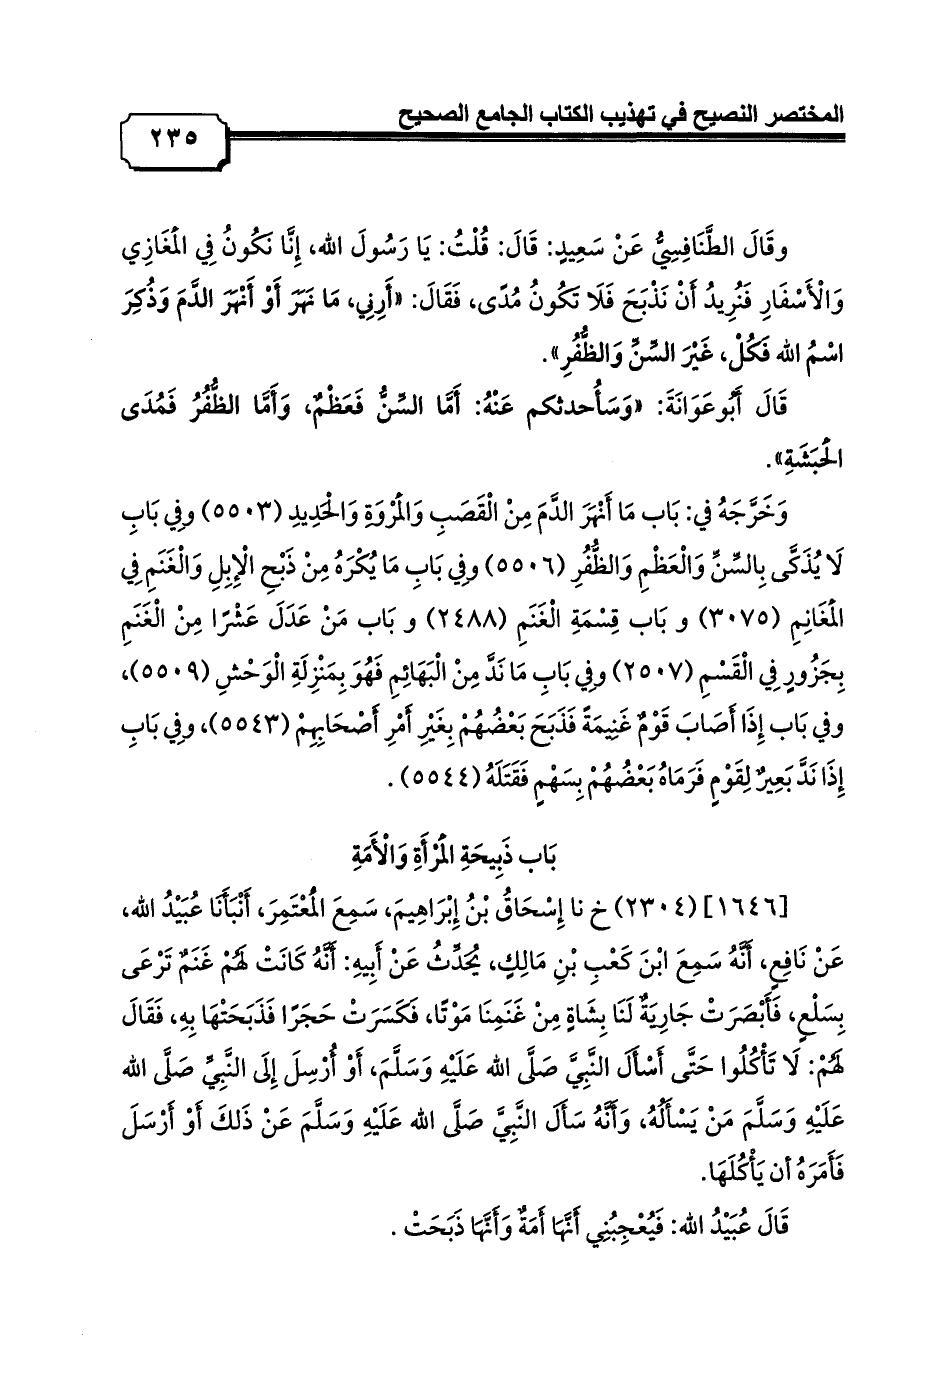 المختصر النصيح في تهذيب الكتاب الجامع الصحيح
٢٣٥
وقَالَ الطَّنَافِسِيُّ عَنْ سَعِيدٍ: قَالَ: قُلْتُ: يَا رَسُولَ الله، إِنَّا نَكُونُ فِي الْمَغَازِي
وَالْأَسْفَارِ فَنُرِيدُ أَنْ نَذْبَحَ فَلَا تَكُونُ مُدًى، فَقَالَ: «أَرِنِي، مَا نَهَرَ أَوْ أَنْهَرَ الدَّمَ وَذُكِرَ
اسْمُ الله فَكُلْ، غَيْرَ السِّنِّ وَالظُّفُرِ».
قَالَ أَبُوعَوَانَةَ: «وَسَأُحدثكم عَنْهُ: أَمَّا السِّنُّ فَعَظْمٌ، وَأَمَّا الظُّفُرُ فَمُدَى
الْحَبَشَةِ».
وَخَرَّجَهُ في: بَاب مَا أَنْهَرَ الدَّمَ مِنْ الْقَصَبِ وَالْمَرْوَةِ وَالْحَدِيدِ (٥٥٠٣) وفِي بَابِ
لَا يُذَكَّى بِالسِّنِّ وَالْعَظْمِ وَالظُّفُرِ (٥٥٠٦) وفِي بَابِ مَا يُكْرَهُ مِنْ ذَبْحِ الْإِبِلِ وَالْغَنَمِ فِي
الْمَغَانِمِ (٣٠٧٥) و بَاب قِسْمَةِ الْغَنَمِ (٢٤٨٨) و بَاب مَنْ عَدَلَ عَشْرًا مِنْ الْغَنَمِ
بِجَزُورٍ فِي الْقَسْمِ (٢٥٠٧) وفِي بَابِ مَا نَدَّ مِنْ الْبَهَائِمِ فَهُوَ بِمَنْزِلَةِ الْوَحْشِ (٥٥٠٩)،
وفي بَاب إِذَا أَصَابَ قَوْمٌ غَنِيمَةً فَذَبَحَ بَعْضُهُمْ بِغَيْرِ أَمْرِ أَصْحَابِهِمْ (٥٥٤٣)، وفِي بَابِ
إِذَا نَدَّ بَعِيرٌ لِقَوْمٍ فَرَمَاهُ بَعْضُهُمْ بِسَهْمٍ فَقَتَلَهُ (٥٥٤٤) .
بَاب ذَبِيحَةِ الْمَرْأَةِ وَالْأَمَةِ
[١٦٤٦] (٢٣٠٤) خ نا إِسْحَاقُ بْنُ إِبْرَاهِيمَ، سَمِعَ الْمُعْتَمِرَ، أَنْبَأَنَا عُبَيْدُ الله،
عَنْ نَافِعٍ، أَنَّهُ سَمِعَ ابْنَ كَعْبِ بْنِ مَالِكٍ، يُحَدِّثُ عَنْ أَبِيهِ: أَنَّهُ كَانَتْ لَهُمْ غَنَمٌ تَرْعَى
بِسَلْعٍ، فَأَبْصَرَتْ جَارِيَةٌ لَنَا بِشَاةٍ مِنْ غَنَمِنَا مَوْتًا، فَكَسَرَتْ حَجَرًا فَذَبَحَتْهَا بِهِ، فَقَالَ
لَهُمْ: لَا تَأْكُلُوا حَتَّى أَسْأَلَ النَّبِيَّ صَلَّى الله عَلَيْهِ وَسَلَّمَ، أَوْ أُرْسِلَ إِلَى النَّبِيِّ صَلَّى الله
عَلَيْهِ وَسَلَّمَ مَنْ يَسْأَلُهُ، وَأَنَّهُ سَأَلَ النَّبِيَّ صَلَّى الله عَلَيْهِ وَسَلَّمَ عَنْ ذَلكَ أَوْ أَرْسَلَ
فَأَمَرَهُ أن يَأْكُلَهَا.
قَالَ عُبَيْدُ الله: فَيُعْجِبُنِي أَنَّهَا أَمَةٌ وَأَنَّهَا ذَبَحَتْ .